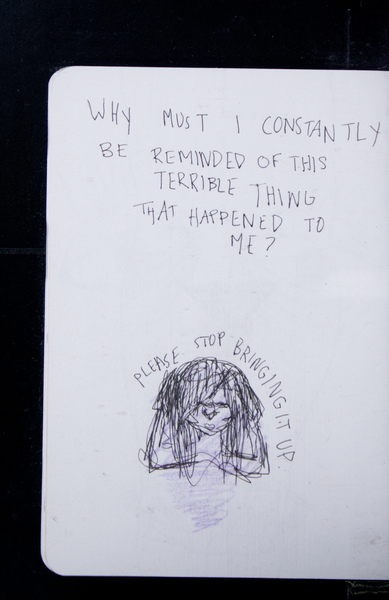 WHY MUST I CONSTANTLY
BE REMINDED OF THIS
TERRIBLE THING
THAT HAPPENED TO
ME?
PLEASE STOP BRINGING IT UP.